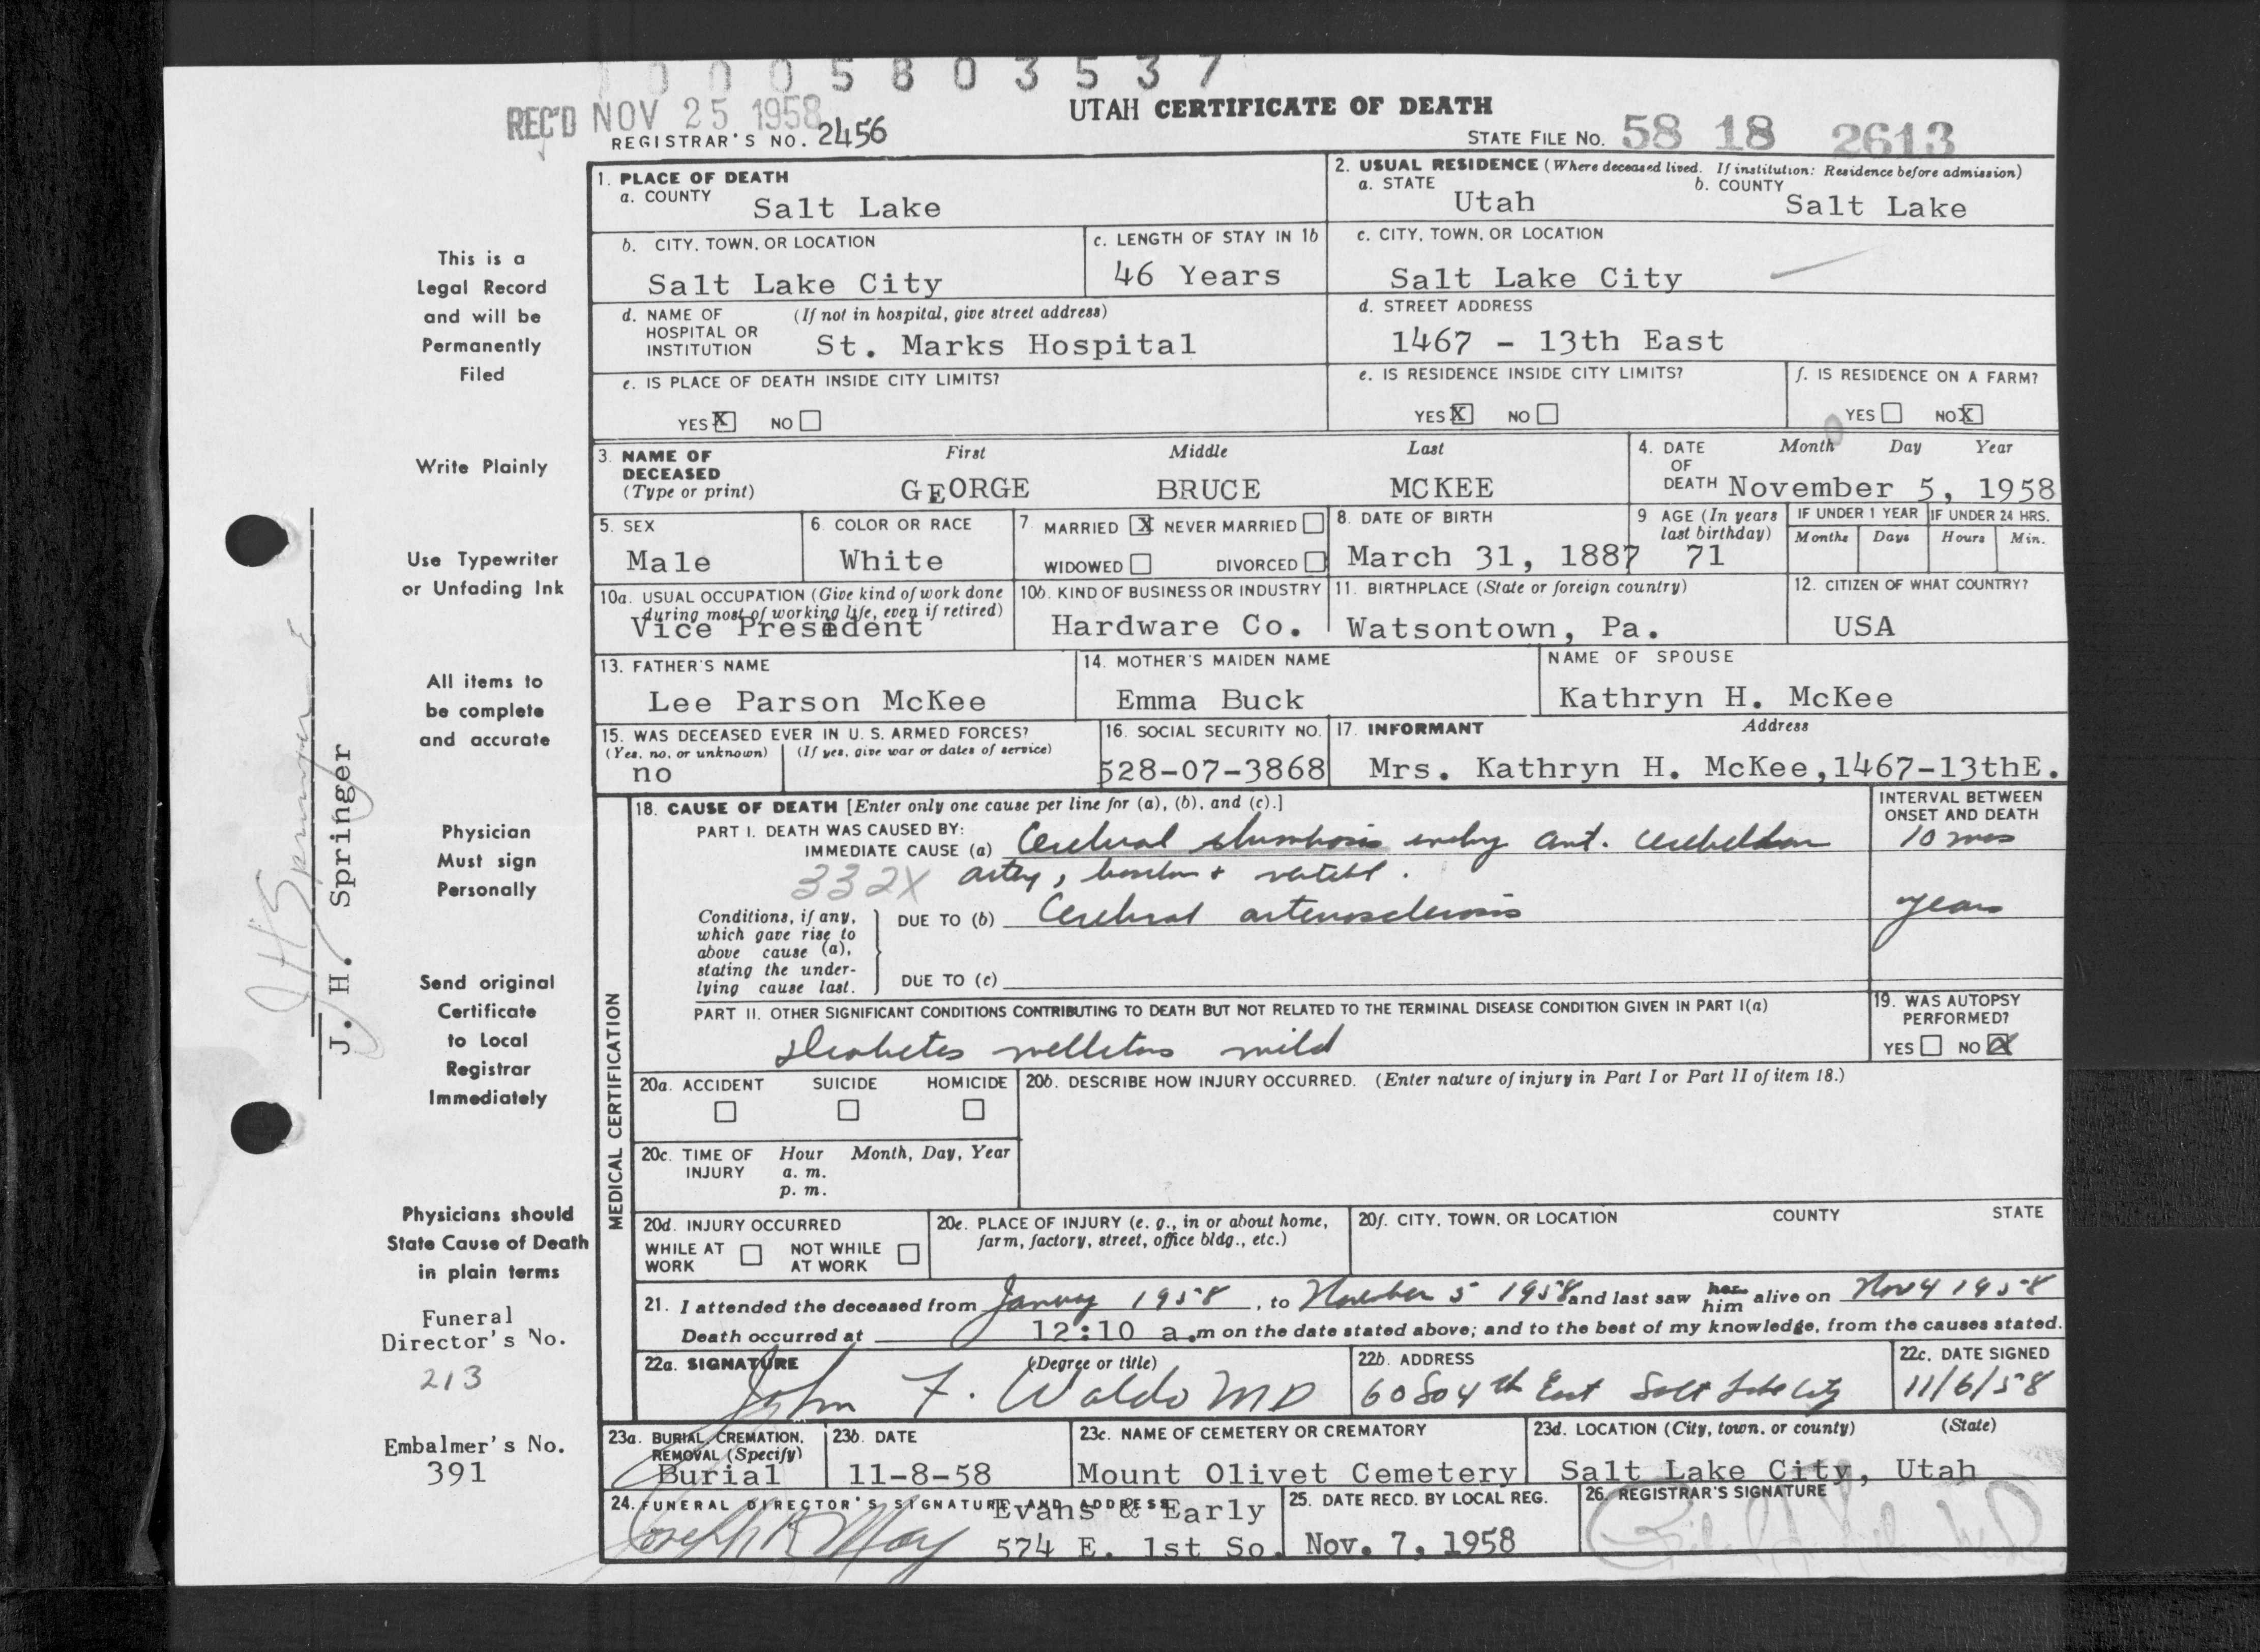 0 0 0 5 8 0 3 5 3 7
REC'D NOV 25 1958
UTAH CERTIFICATE OF DEATH
REGISTRAR'S NO. 2456
STATE FILE NO. 58 18 2613
1. PLACE OF DEATH
a. COUNTY Salt Lake
2. USUAL RESIDENCE (Where deceased lived. If institution: Residence before admission)
a. STATE Utah b. COUNTY Salt Lake
b. CITY, TOWN, OR LOCATION Salt Lake City
c. LENGTH OF STAY IN 1b 46 Years
c. CITY, TOWN, OR LOCATION Salt Lake City
d. NAME OF HOSPITAL OR INSTITUTION (If not in hospital, give street address) St. Marks Hospital
d. STREET ADDRESS 1467 - 13th East
e. IS PLACE OF DEATH INSIDE CITY LIMITS? YES X NO
e. IS RESIDENCE INSIDE CITY LIMITS? YES X NO
f. IS RESIDENCE ON A FARM? YES NO X
3. NAME OF DECEASED (Type or print) First Middle Last
GEORGE BRUCE MCKEE
4. DATE OF DEATH Month Day Year
November 5, 1958
5. SEX Male
6. COLOR OR RACE White
7. MARRIED X NEVER MARRIED
WIDOWED DIVORCED
8. DATE OF BIRTH March 31, 1887
9 AGE (In years last birthday) 71
IF UNDER 1 YEAR Months Days
IF UNDER 24 HRS. Hours Min.
10a. USUAL OCCUPATION (Give kind of work done during most of working life, even if retired)
Vice President
10b. KIND OF BUSINESS OR INDUSTRY Hardware Co.
11. BIRTHPLACE (State or foreign country) Watsontown, Pa.
12. CITIZEN OF WHAT COUNTRY? USA
13. FATHER'S NAME Lee Parson McKee
14. MOTHER'S MAIDEN NAME Emma Buck
NAME OF SPOUSE Kathryn H. McKee
15. WAS DECEASED EVER IN U. S. ARMED FORCES?
(Yes, no, or unknown) (If yes, give war or dates of service)
no
16. SOCIAL SECURITY NO. 528-07-3868
17. INFORMANT Address
Mrs. Kathryn H. McKee, 1467-13thE.
MEDICAL CERTIFICATION
18. CAUSE OF DEATH [Enter only one cause per line for (a), (b), and (c).]
INTERVAL BETWEEN ONSET AND DEATH
PART I. DEATH WAS CAUSED BY:
IMMEDIATE CAUSE (a) Cerebral thrombosis ant. cerebellar 10 mos
332X artery,
Conditions, if any, which gave rise to above cause (a), stating the underlying cause last.
DUE TO (b) Cerebral arteriosclerosis years
DUE TO (c)
PART II. OTHER SIGNIFICANT CONDITIONS CONTRIBUTING TO DEATH BUT NOT RELATED TO THE TERMINAL DISEASE CONDITION GIVEN IN PART I(a)
Diabetes mellitus mild
19. WAS AUTOPSY PERFORMED? YES NO X
20a. ACCIDENT SUICIDE HOMICIDE
20b. DESCRIBE HOW INJURY OCCURRED. (Enter nature of injury in Part I or Part II of item 18.)
20c. TIME OF INJURY Hour a. m. p. m. Month, Day, Year
20d. INJURY OCCURRED
WHILE AT WORK NOT WHILE AT WORK
20e. PLACE OF INJURY (e. g., in or about home, farm, factory, street, office bldg., etc.)
20f. CITY, TOWN, OR LOCATION COUNTY STATE
21. I attended the deceased from January 1958, to November 5 1958 and last saw her him alive on Nov 4 1958
Death occurred at 12:10 a.m on the date stated above; and to the best of my knowledge, from the causes stated.
22a. SIGNATURE (Degree or title) John F. Waldo MD
22b. ADDRESS 60 So 4th East Salt Lake City
22c. DATE SIGNED 11/6/58
23a. BURIAL, CREMATION, REMOVAL (Specify) Burial
23b. DATE 11-8-58
23c. NAME OF CEMETERY OR CREMATORY Mount Olivet Cemetery
23d. LOCATION (City, town, or county) (State) Salt Lake City, Utah
24. FUNERAL DIRECTOR'S SIGNATURE AND ADDRESS Evans & Early
Joseph R May 574 E. 1st So.
25. DATE RECD. BY LOCAL REG. Nov. 7, 1958
26. REGISTRAR'S SIGNATURE
This is a
Legal Record
and will be
Permanently
Filed
Write Plainly
Use Typewriter
or Unfading Ink
All items to
be complete
and accurate
Physician
Must sign
Personally
Send original
Certificate
to Local
Registrar
Immediately
Physicians should
State Cause of Death
in plain terms
Funeral
Director's No.
213
Embalmer's No.
391
J H Springer
J. H. Springer